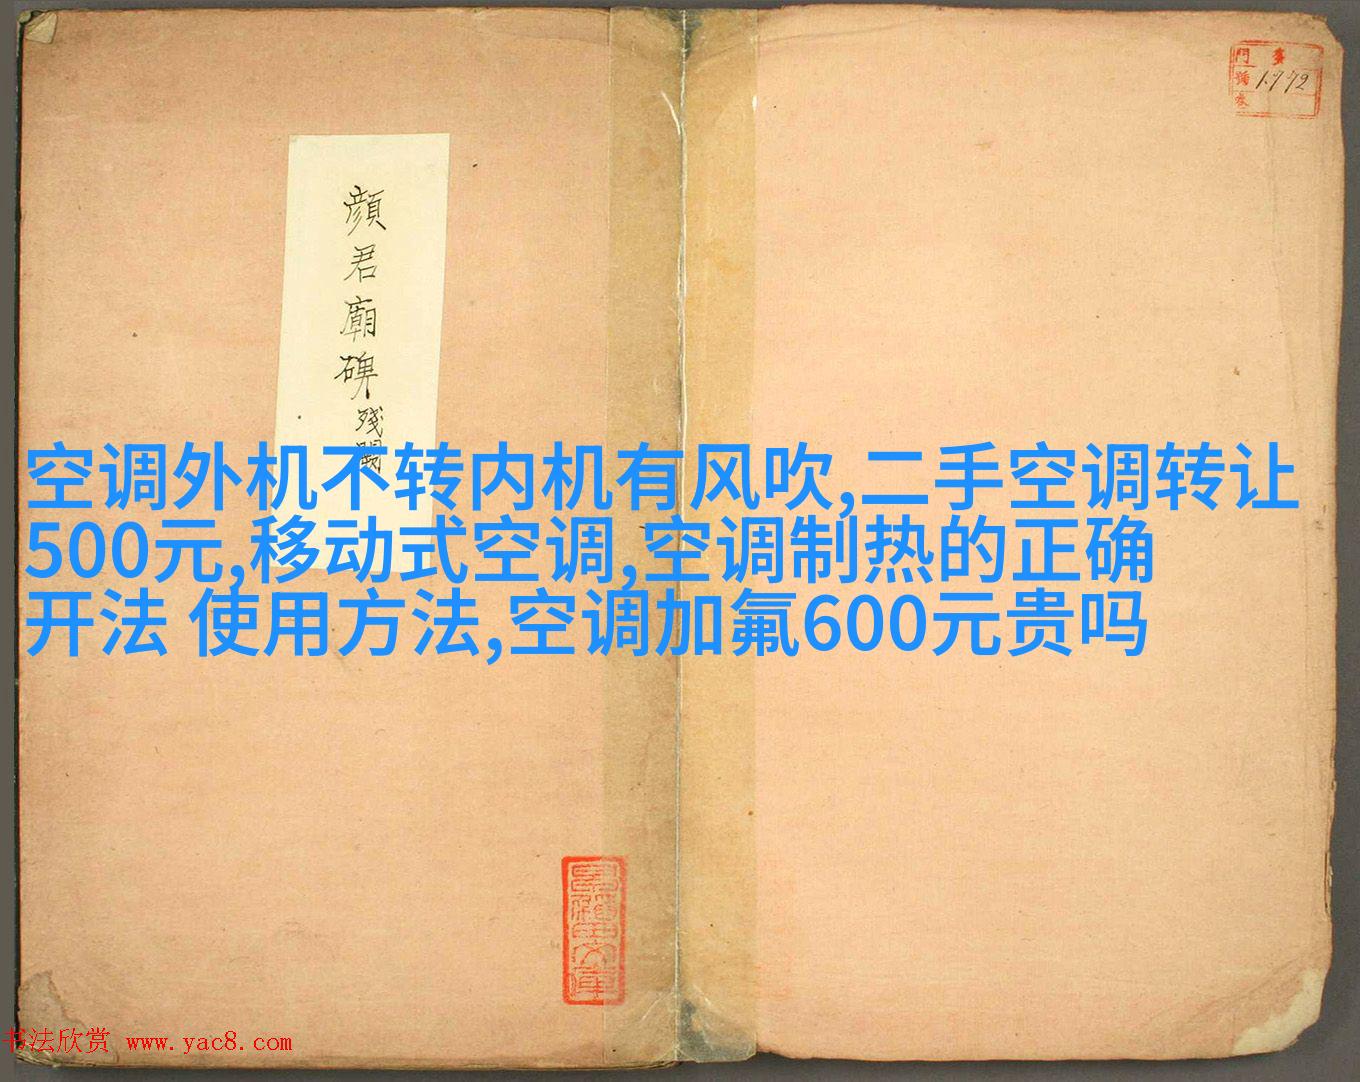 門
彙
號
1772
卷
顔
君
廟
碑
残
闕
空调外机不转内机有风吹,二手空调转让
500元,移动式空调,空调制热的正确
开法 使用方法,空调加氟600元贵吗
书法欣赏 www.yac8.com